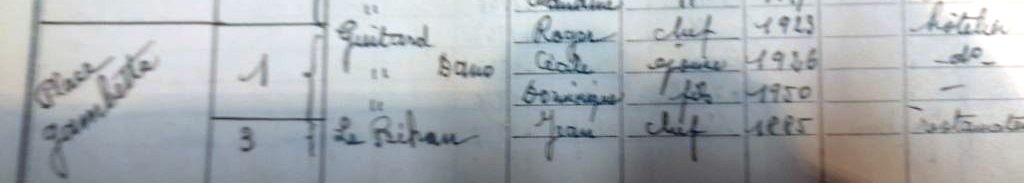 Guitard Roger chef 1923 hôtelier
Place Gambetta 1 " Dano Cécile épouse 1926 -do-
" Dominique fils 1950 -
3 Le Bihan Jean chef 1885